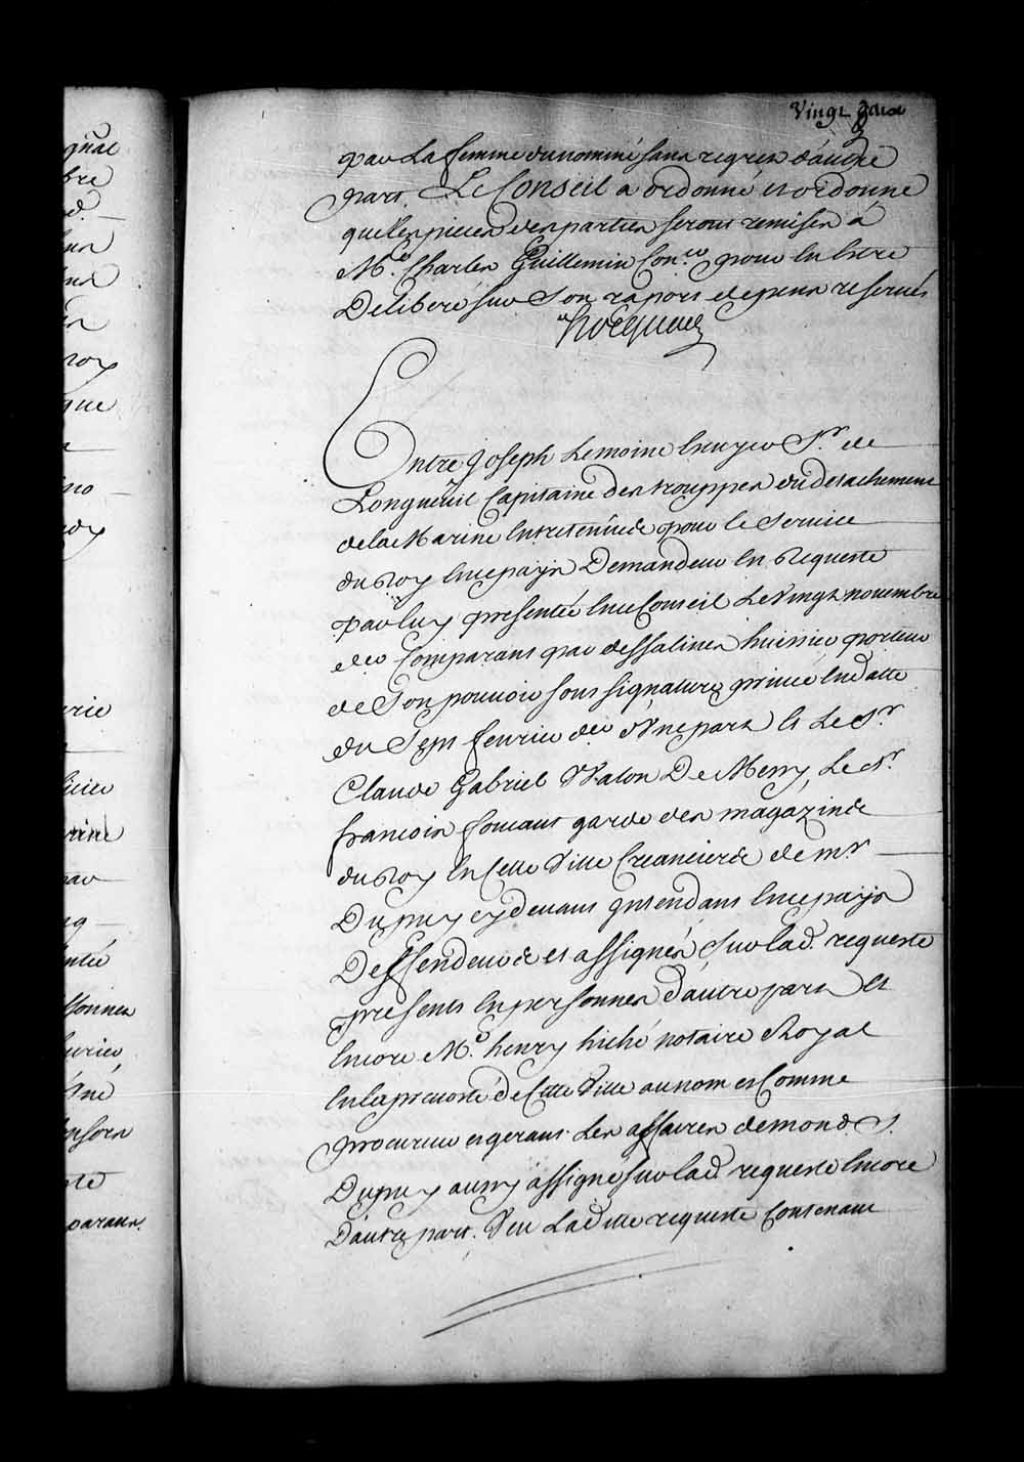 Vingt
par La femme dunommé sans regret d'autre
part. Le Conseil a ordonné et ordonne
que les pieces des parties seront remises a
Me. Charles Guillemin Con.er pour en Estre
Deliberé sur Son raport depens reservés
Hocquart
Entre Joseph Lemoine Escuyer Sr. de
Longueüil Capitaine des trouppes du detachement
de la Marine Entretenües pour le Service
du Roy En ce pays Demandeur En Requeste
par luy presentée En ce Conseil Le Vingt novembre
der Comparant par dessalines huissier porteur
de Son pouvoir sous signature privée En datte
du Sept fevrier der d'Une part Et Le Sr.
Claude Gabriel Walon De Messy, Le Sr.
francois foucault garde des magazins
du Roy En Cette Ville Creanciers de mr
Dupuy cy devant Intendant En ce pays
Deffendeurs et assignés Sur lad. requeste
presents En personnes d'autre part Et
Encore Me. henry hiché notaire Royal
En la prevosté de Cette Ville au nom et Comme
procureur et gerant Les affaires de mond. S.
Dupuy aussy assigné sur lad. requeste Encore
D'autre part. Veu Laditte requeste Contenant
gnal
bre
d.
roy
que
no
erie
rine
par
tié
sonnes
vrier
né
te
parans